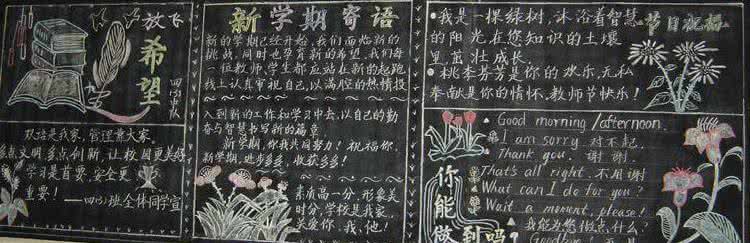 放飞
希望
四(3)中队
双语是我家,管理靠大家。
多点文明,多点创新,让校园更美好
学习是首要,安全更
重要!
——四(3)班全体同学宣
新学期寄语
新的学期已经开始,我们面临新的
挑战,同时也孕育新的希望,我们每
一位教师,学生都应站在新的起跑
线上认真审视自己,以满腔的热情投
入到新的工作和学习中去,以自己的勤
奋与智慧书写新的篇章
新学期,你我共同努力!祝福你,
新学期,进步多多,收获多多!
素质高一分,形象美
时分,学校是我家,
关爱你、我、他!
节日祝福
·我是一棵绿树,沐浴着智慧
的阳光,在您知识的土壤
里,茁壮成长.
·桃李芬芳是你的欢乐,无私
奉献是你的情怀,教师节快乐!
你能做到吗?
Good morning /afternoon.
I am sorry 对不起.
Thank you. 谢谢.
That's all right. 不用谢
What can I do for you?
Wait a moment, please!
我能为您做点什么?